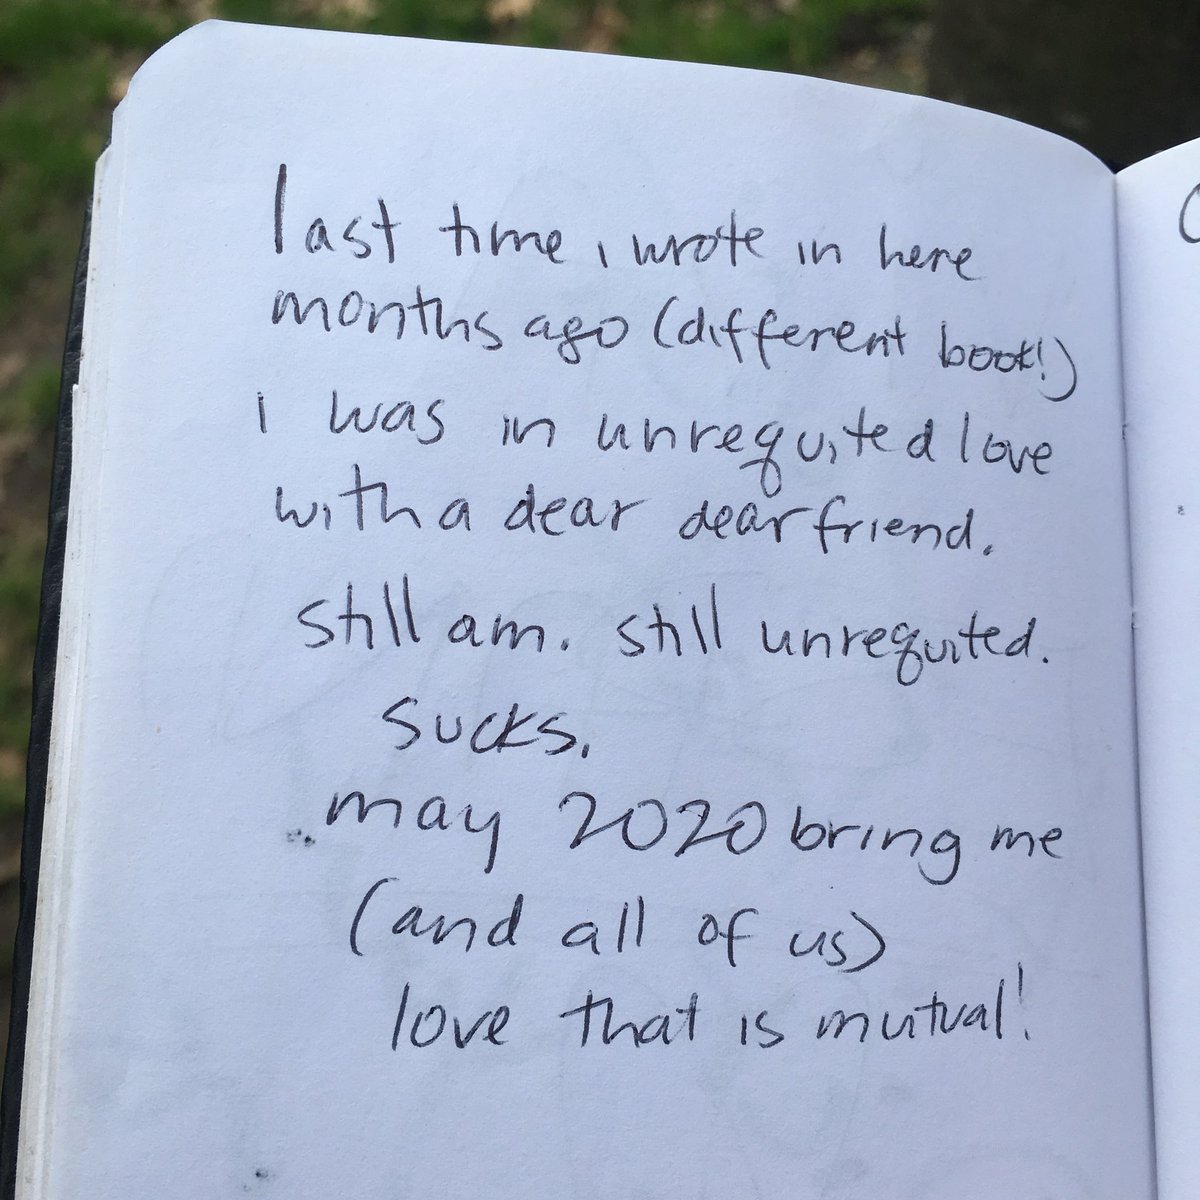 last time i wrote in here
months ago (different book!)
i was in unrequited love
with a dear dear friend.
still am. still unrequited.
sucks.
may 2020 bring me
(and all of us)
love that is mutual!